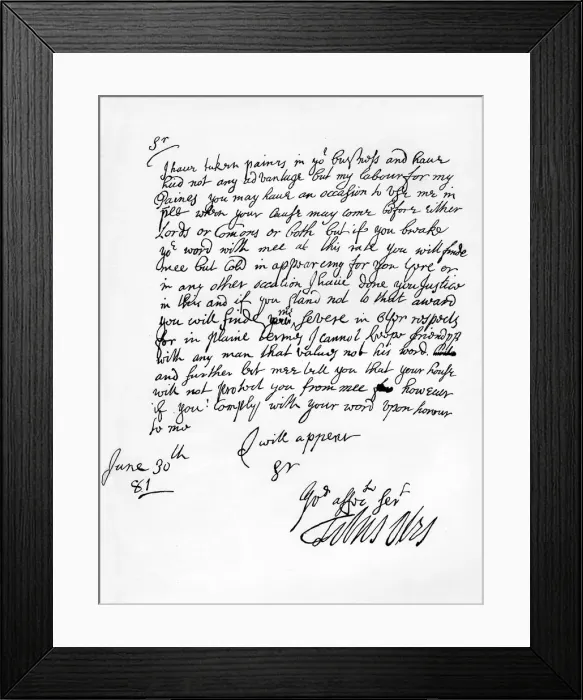 Sr
I haue taken paines in yor business and haue
had not any advantage but my labour for my
Paines you may haue an occasion to use me in
when your cause may come before Either
Lords or Comons or both but if you breake
yor word with mee at this rate you will finde
mee but Cold in appeareing for you here or
in any other occation I haue done you Justice
in this and if you stand not to that award
you will finde mee severe in other respects
for in plaine termes I cannot keepe friends
with any man that values not his word
and further let mee tell you that your house
will not protect you from mee however
if you Comply with your word upon honour
to me
I will appeare
Sr
June 30th
81
yor affec: Serv